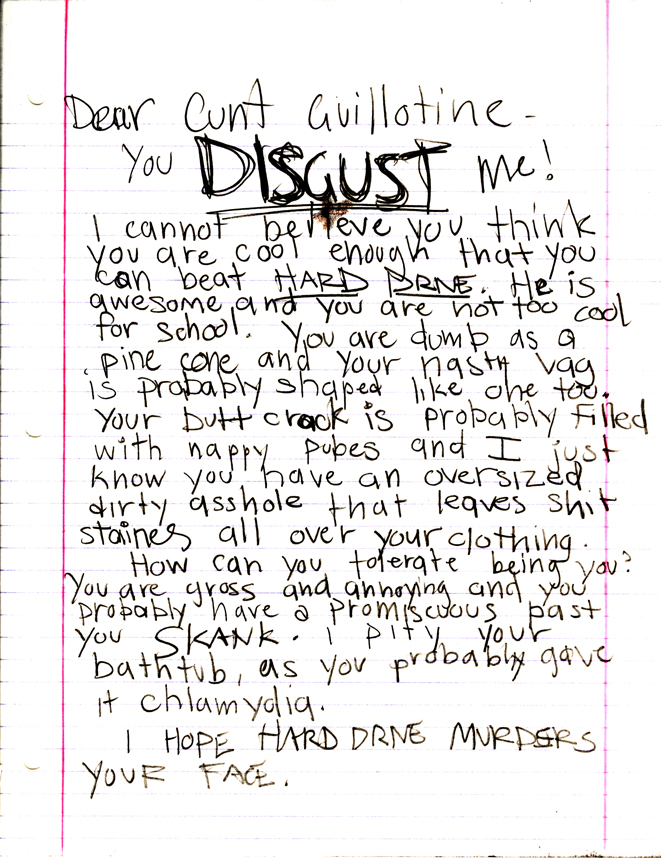 Dear Cunt Guillotine -
You DISGUST me!
I cannot believe you think
you are cool enough that you
can beat HARD DRIVE. He is
awesome and you are not too cool
for school. You are dumb as a
pine cone and your nasty vag
is probably shaped like one too.
Your butt crack is probably filled
with nappy pubes and I just
know you have an oversized
dirty asshole that leaves shit
staines all over your clothing.
How can you tolerate being you?
You are gross and annoying and you
probably have a promiscuous past
you SKANK. I pity your
bathtub, as you probably gave
it chlamydia.
I HOPE HARD DRIVE MURDERS
YOUR FACE.